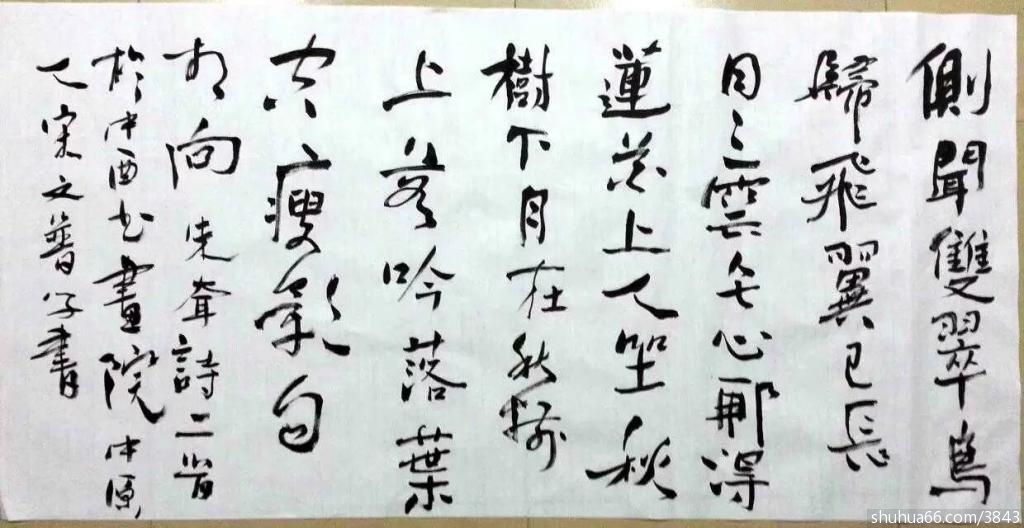 側聞雙翠鳥
歸飛翼已長
日三雲無心那得
蓮花上人坐秋
樹下月在秋
上 吟落葉
穴瘦影自
相向 朱耷詩二首
於中酉書畫院 中原
人宋文普字書
shuhua66.com/3843